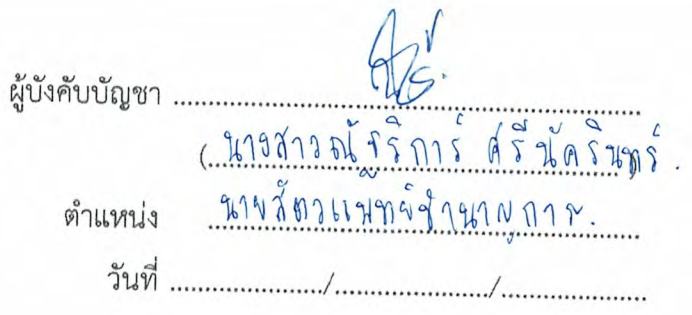 ผู้บังคับบัญชา ................................................
( นางสาวณัฐริการ์ ศรีนัครินทร์ .
ตำแหน่ง นายสัตวแพทย์ชำนาญการ.
วันที่ ................/................/................